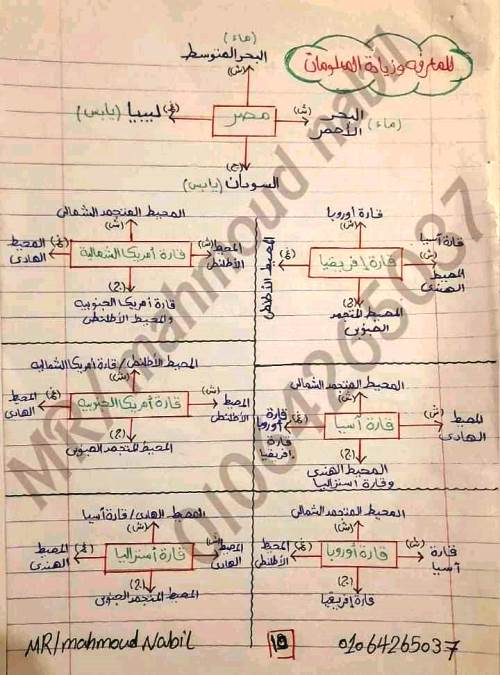 للمعرفه وزيادة المعلومات
(ماء)
البحر المتوسط
(ش)
ليبيا (يابس)
(غ)
مصر
(ش)
البحر
الأحمر
(ماء)
(ج)
السودان (يابس)
قارة أوروبا
(ش)
المحيط الأطلنطى
(غ)
قارة إفريقيا
(ش)
قارة آسيا
المحيط
الهندى
(ج)
المحيط المتجمد
الجنوبى
المحيط المتجمد الشمالى
(ش)
المحيط
الهادى
(غ)
قارة أمريكا الشمالية
(ش)
المحيط
الأطلنطى
(ج)
قارة أمريكا الجنوبية
والمحيط الأطلنطى
المحيط المتجمد الشمالى
(ش)
قارة
أوروبا
(غ)
قارة
إفريقيا
قارة آسيا
(ش)
المحيط
الهادى
(ج)
المحيط الهندى
وقارة استراليا
المحيط الأطلنطى / قارة أمريكا الشمالية
(ش)
المحيط
الهادى
(غ)
قارة أمريكا الجنوبية
(ش)
المحيط
الأطلنطى
(ج)
المحيط المتجمد الجنوبى
المحيط المتجمد الشمالى
(ش)
المحيط
الأطلنطى
(غ)
قارة أوروبا
(ش)
قارة
آسيا
(ج)
قارة إفريقيا
المحيط الهندى / قارة آسيا
(ش)
المحيط
الهندى
(غ)
قارة أستراليا
(ش)
المحيط
الهادى
(ج)
المحيط المتجمد الجنوبى
MR/mahmoud Nabil
01064265037
MR/mahmoud nabil
01064265037